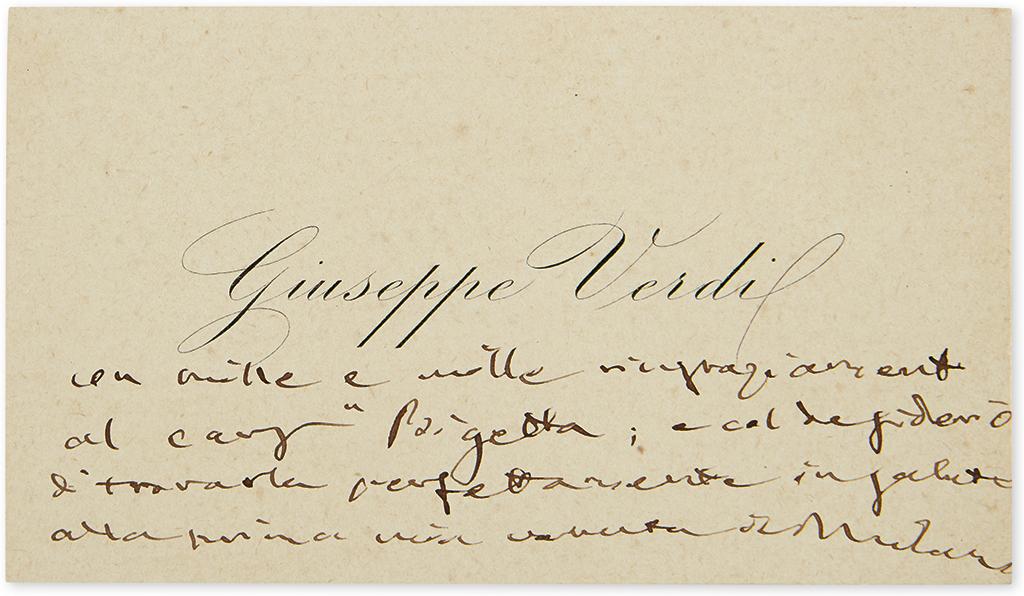 Giuseppe Verdi
con mille e mille ringraziamenti
al ; e col desiderio
di trovarla perfettamente in salute
alla prima mia venuta Milano